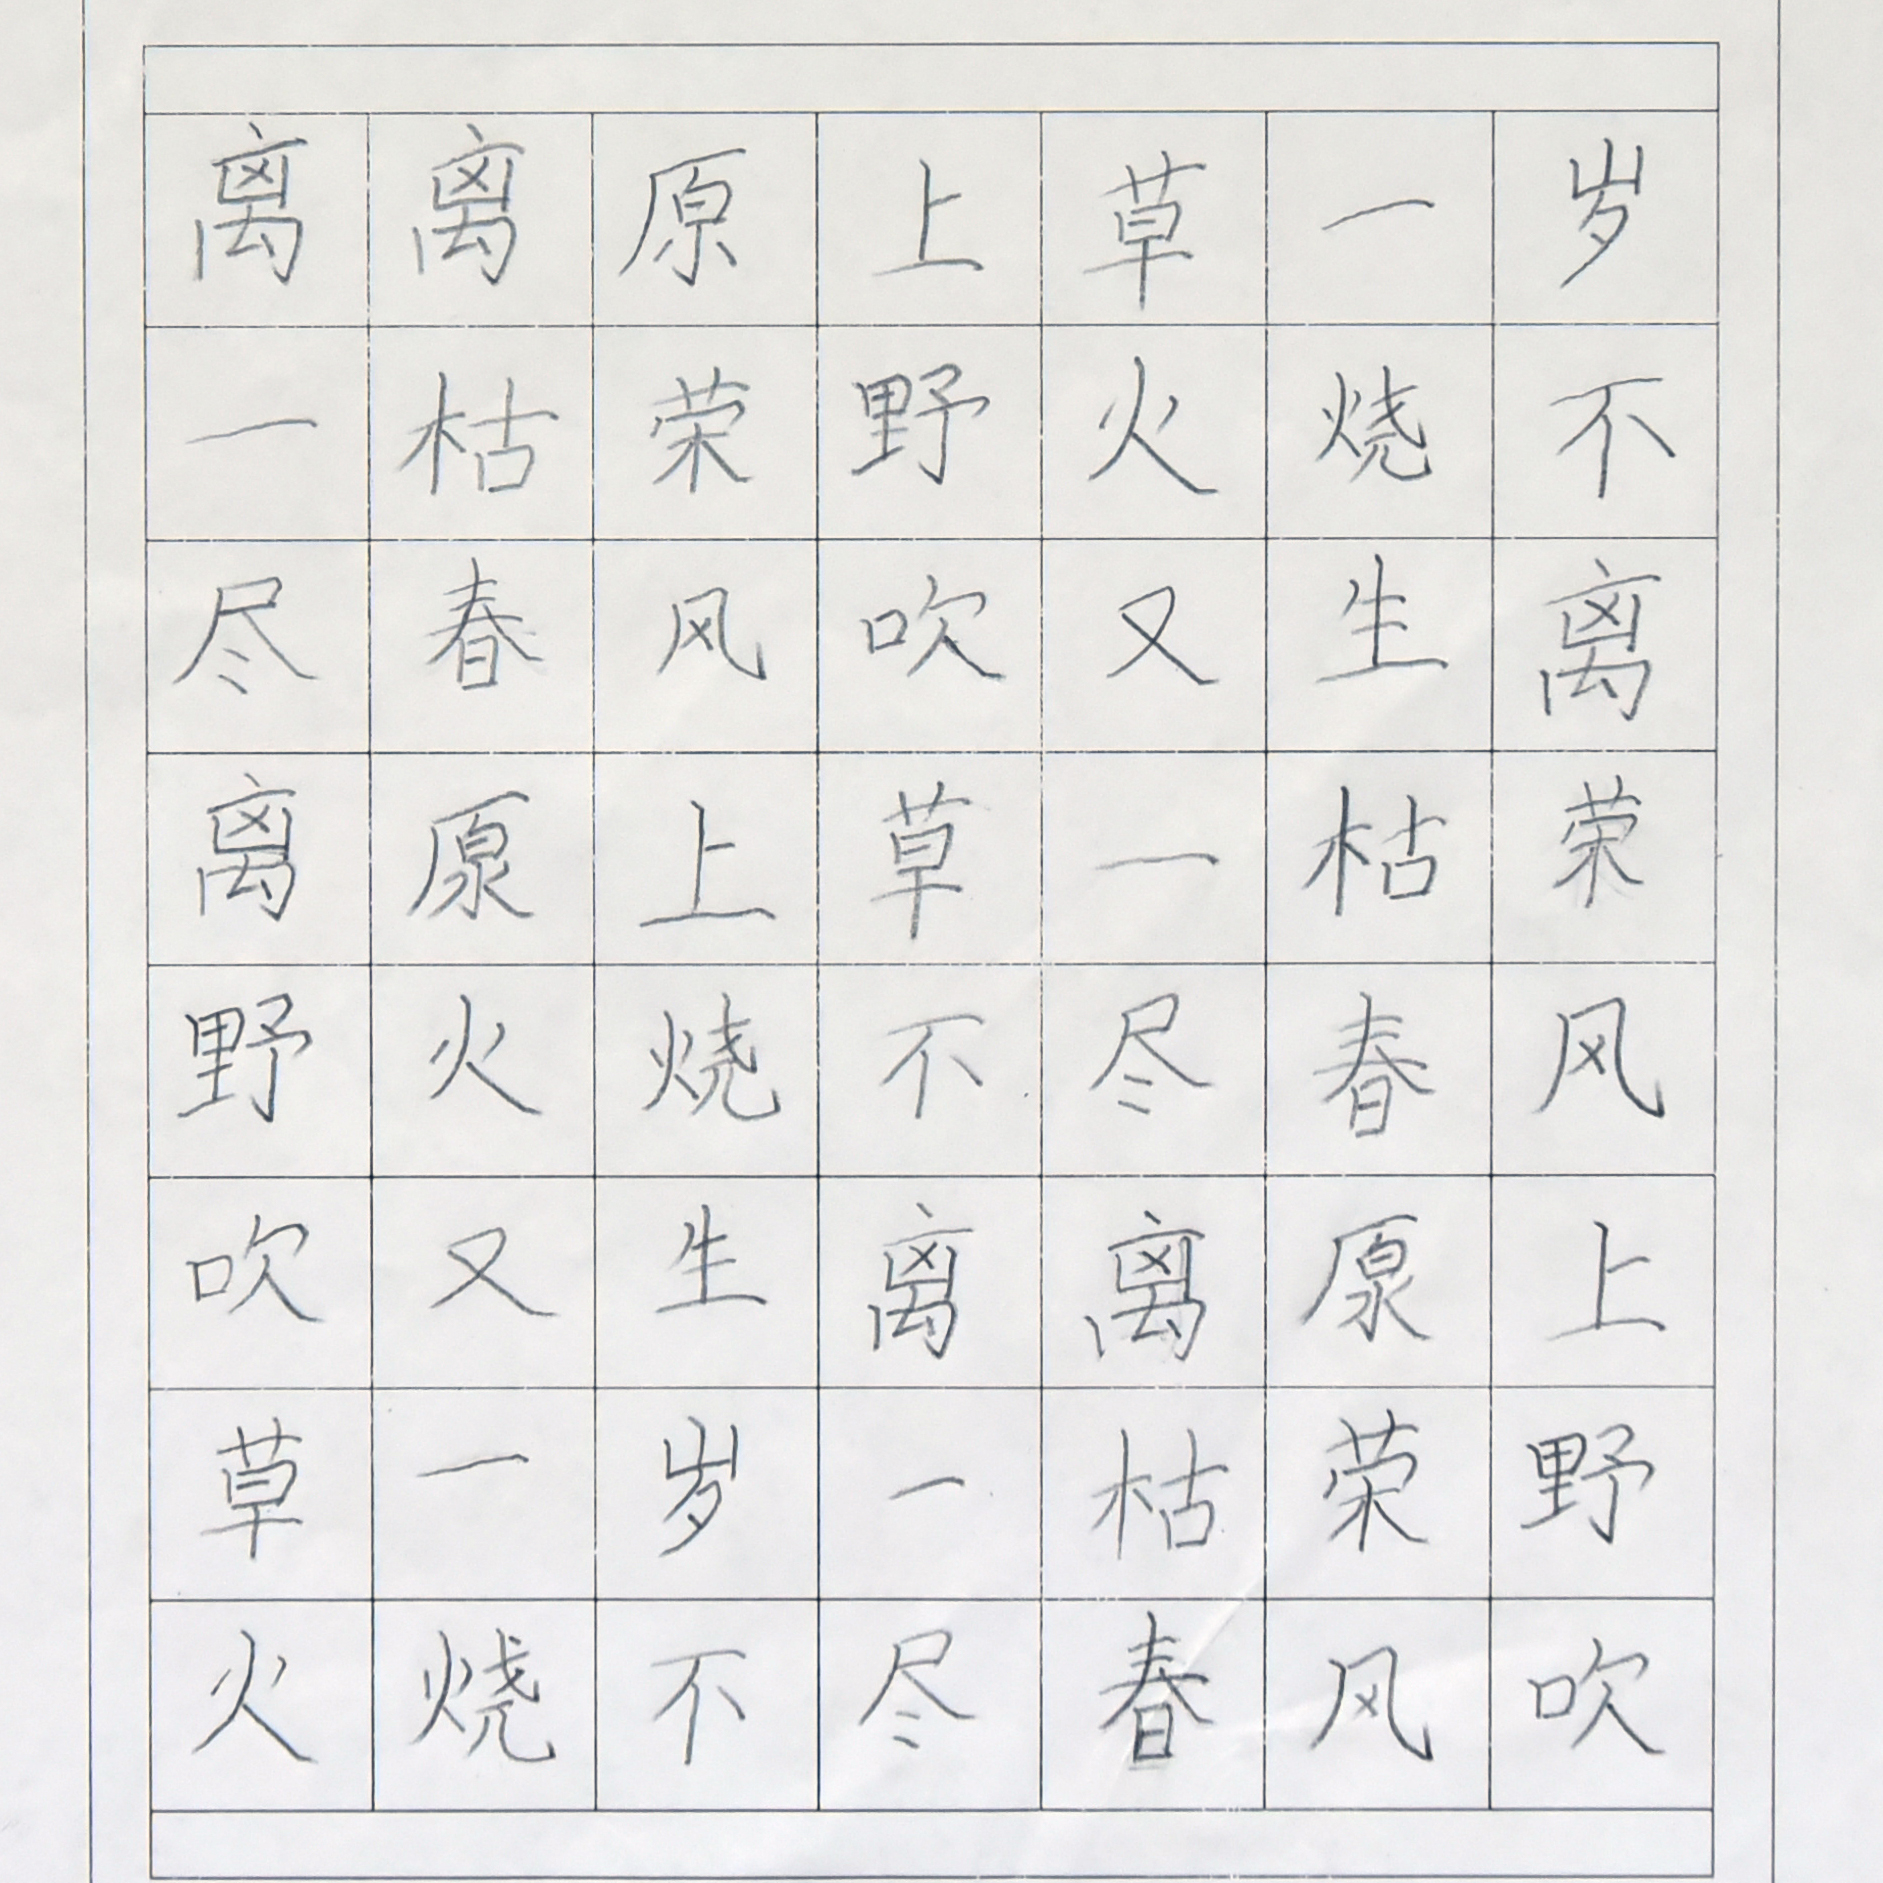 离离原上草一岁
一枯荣野火烧不
尽春风吹又生离
离原上草一枯荣
野火烧不尽春风
吹又生离离原上
草一岁一枯荣野
火烧不尽春风吹